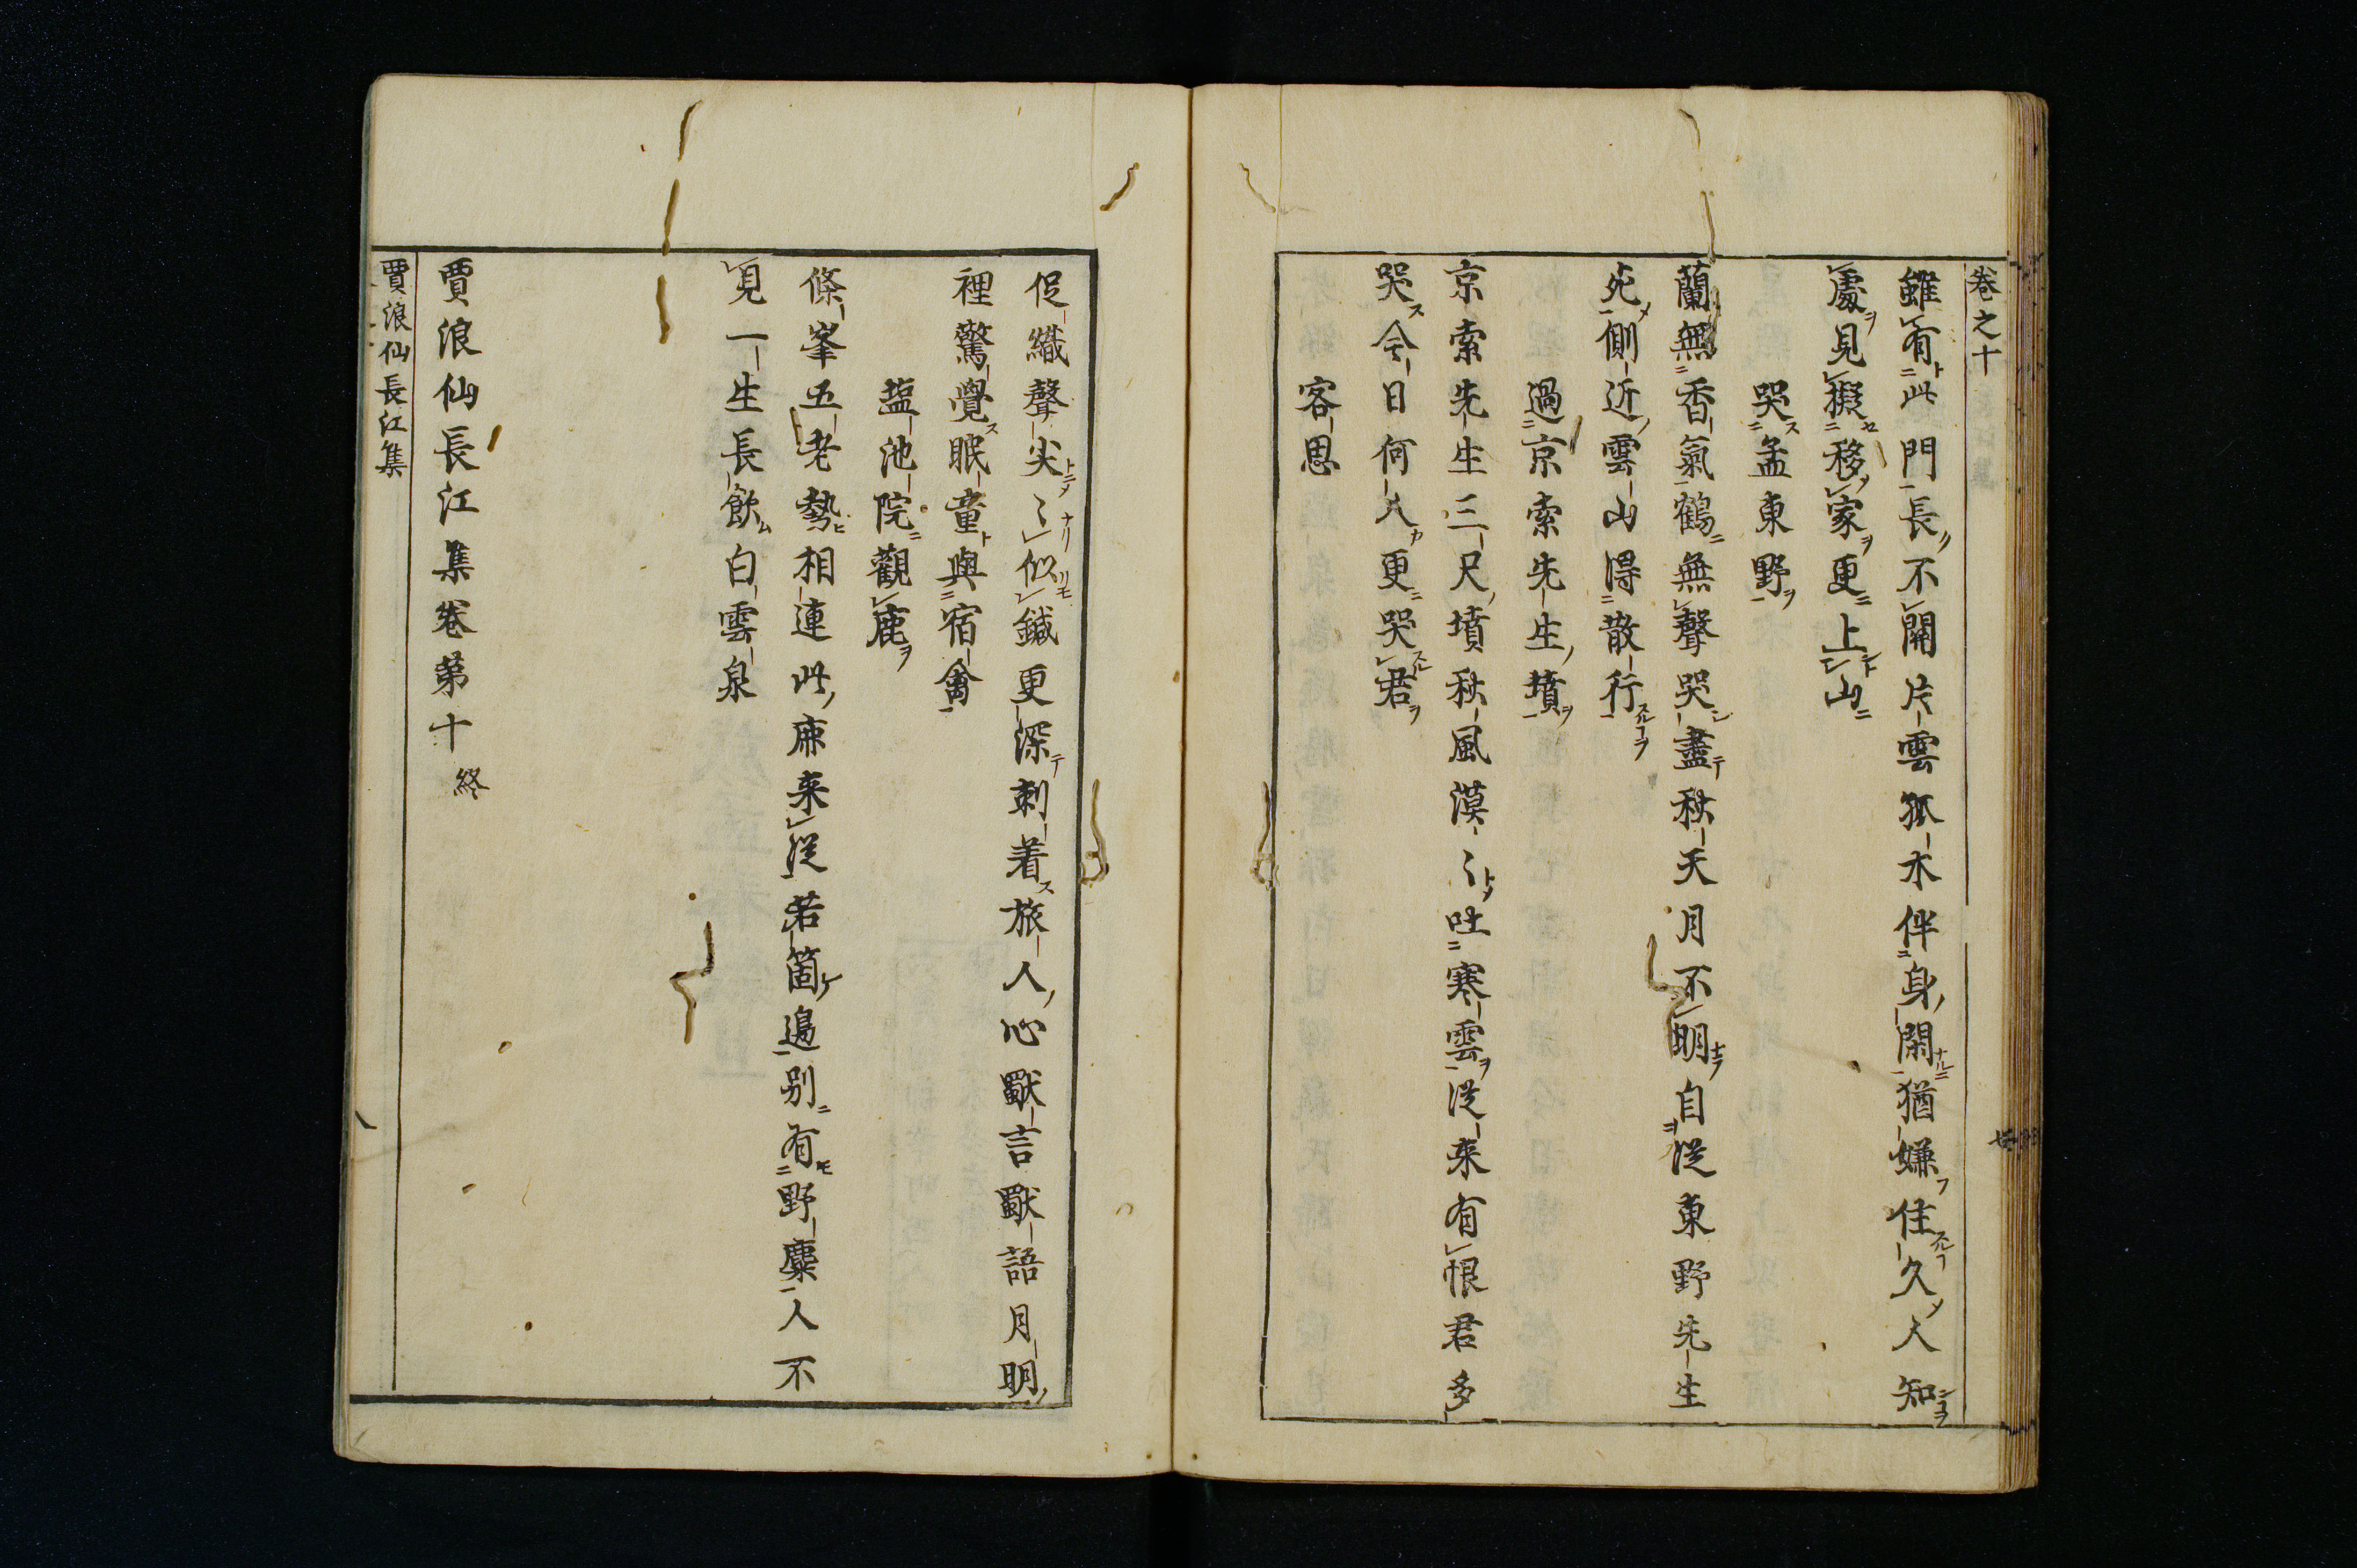 卷之十
雖有此門長不開片雲孤木伴身閑猶嫌住久人知
處見擬移家更上山
哭孟東野
蘭無香氣鶴無聲哭盡秋天月不明自從東野先生
死側近雲山得散行
過京索先生墳
京索先生三尺墳秋風漠〻吐寒雲從來有恨君多
哭今日何人更哭君
客思
促織聲尖〻似鍼更深刺着旅人心獸言獸語月明
裡驚覺眠童與宿禽
塩池院觀鹿
條峯五老勢相連此鹿来從若箇邊別有野麋人不
見一生長飲白雲泉
賈浪仙長江集卷第十 終
賈浪仙長江集